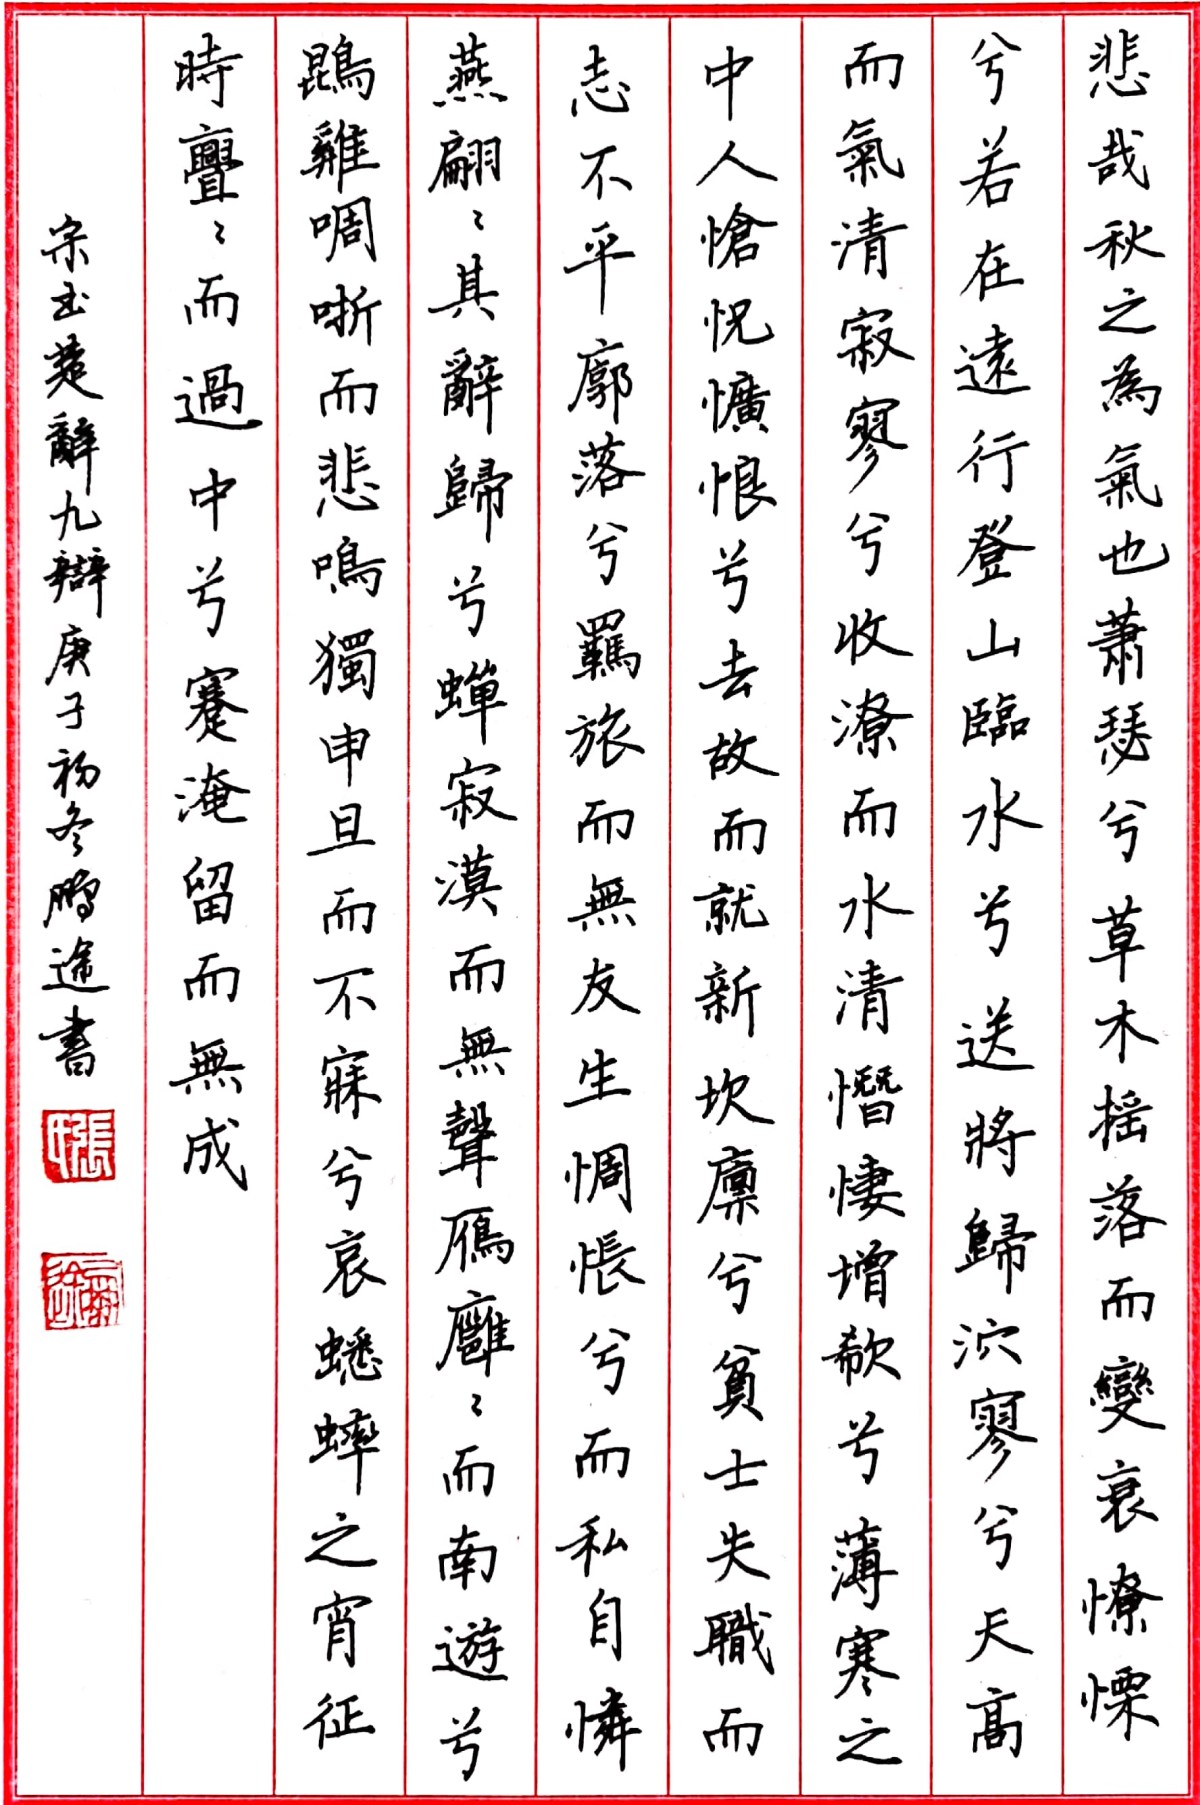 悲哉秋之為氣也蕭瑟兮草木摇落而變衰憭慄
兮若在遠行登山臨水兮送將歸泬寥兮天高
而氣清寂寥兮收潦而水清憯悽增欷兮薄寒之
中人愴怳懭悢兮去故而就新坎廩兮貧士失職而
志不平廓落兮羈旅而無友生惆悵兮而私自憐
燕翩〻其辭歸兮蟬寂漠而無聲鴈廱〻而南遊兮
鵾雞啁哳而悲鳴獨申旦而不寐兮哀蟋蟀之宵征
時亹〻而過中兮蹇淹留而無成
宋玉楚辭九辯庚子初冬鵬途書
張